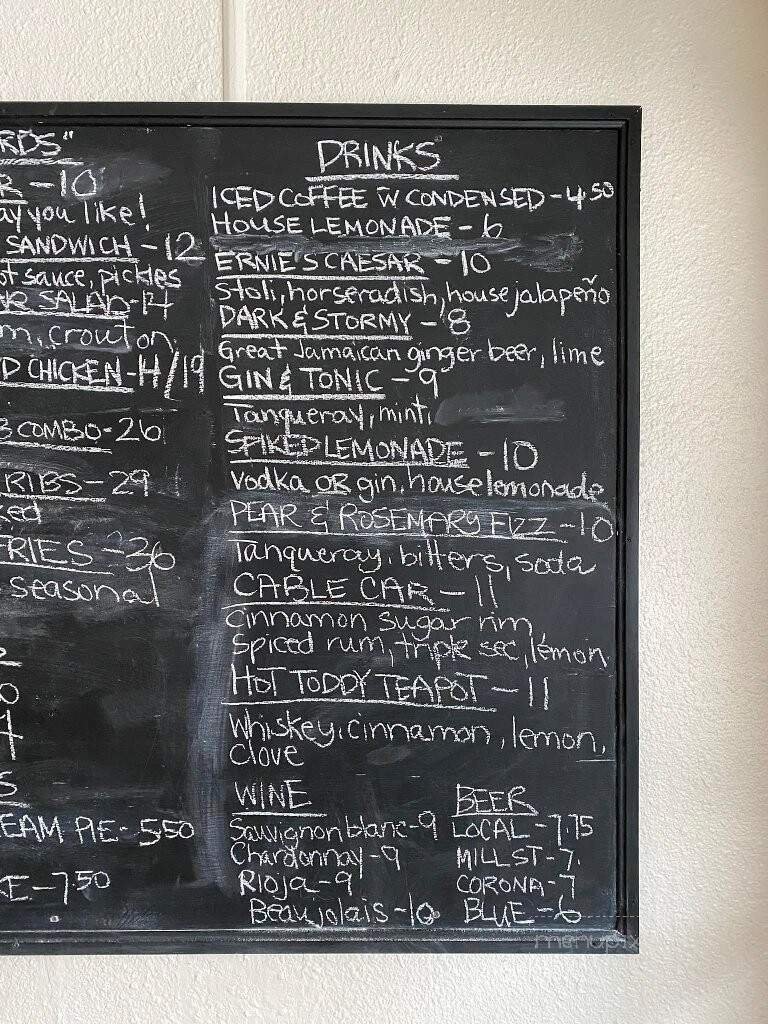 RDS"
R - 10
ay you like!
SANDWICH - 12
ot sauce, pickles
AR SALAD - 14
m, crouton
D CHICKEN - H/19
B COMBO - 26
RIBS - 29
ked
FRIES - 36
seasonal
S
EAM PIE - 5.50
KE - 7.50
DRINKS
ICED COFFEE W CONDENSED - 4.50
HOUSE LEMONADE - 6
ERNIE'S CAESAR - 10
Stoli, horseradish, house jalapeño
DARK & STORMY - 8
Great Jamaican ginger beer, lime
GIN & TONIC - 9
Tanqueray, mint,
SPIKED LEMONADE - 10
Vodka OR gin, house lemonade
PEAR & ROSEMARY FIZZ - 10
Tanqueray, bitters, soda
CABLE CAR - 11
Cinnamon sugar rim
Spiced rum, triple sec, lemon
HOT TODDY TEAPOT - 11
Whiskey, cinnamon, lemon,
clove
WINE
Sauvignon blanc - 9
Chardonnay - 9
Rioja - 9
Beaujolais - 10
BEER
LOCAL - 7.75
MILL ST - 7.
CORONA - 7
BLUE - 6
menupix